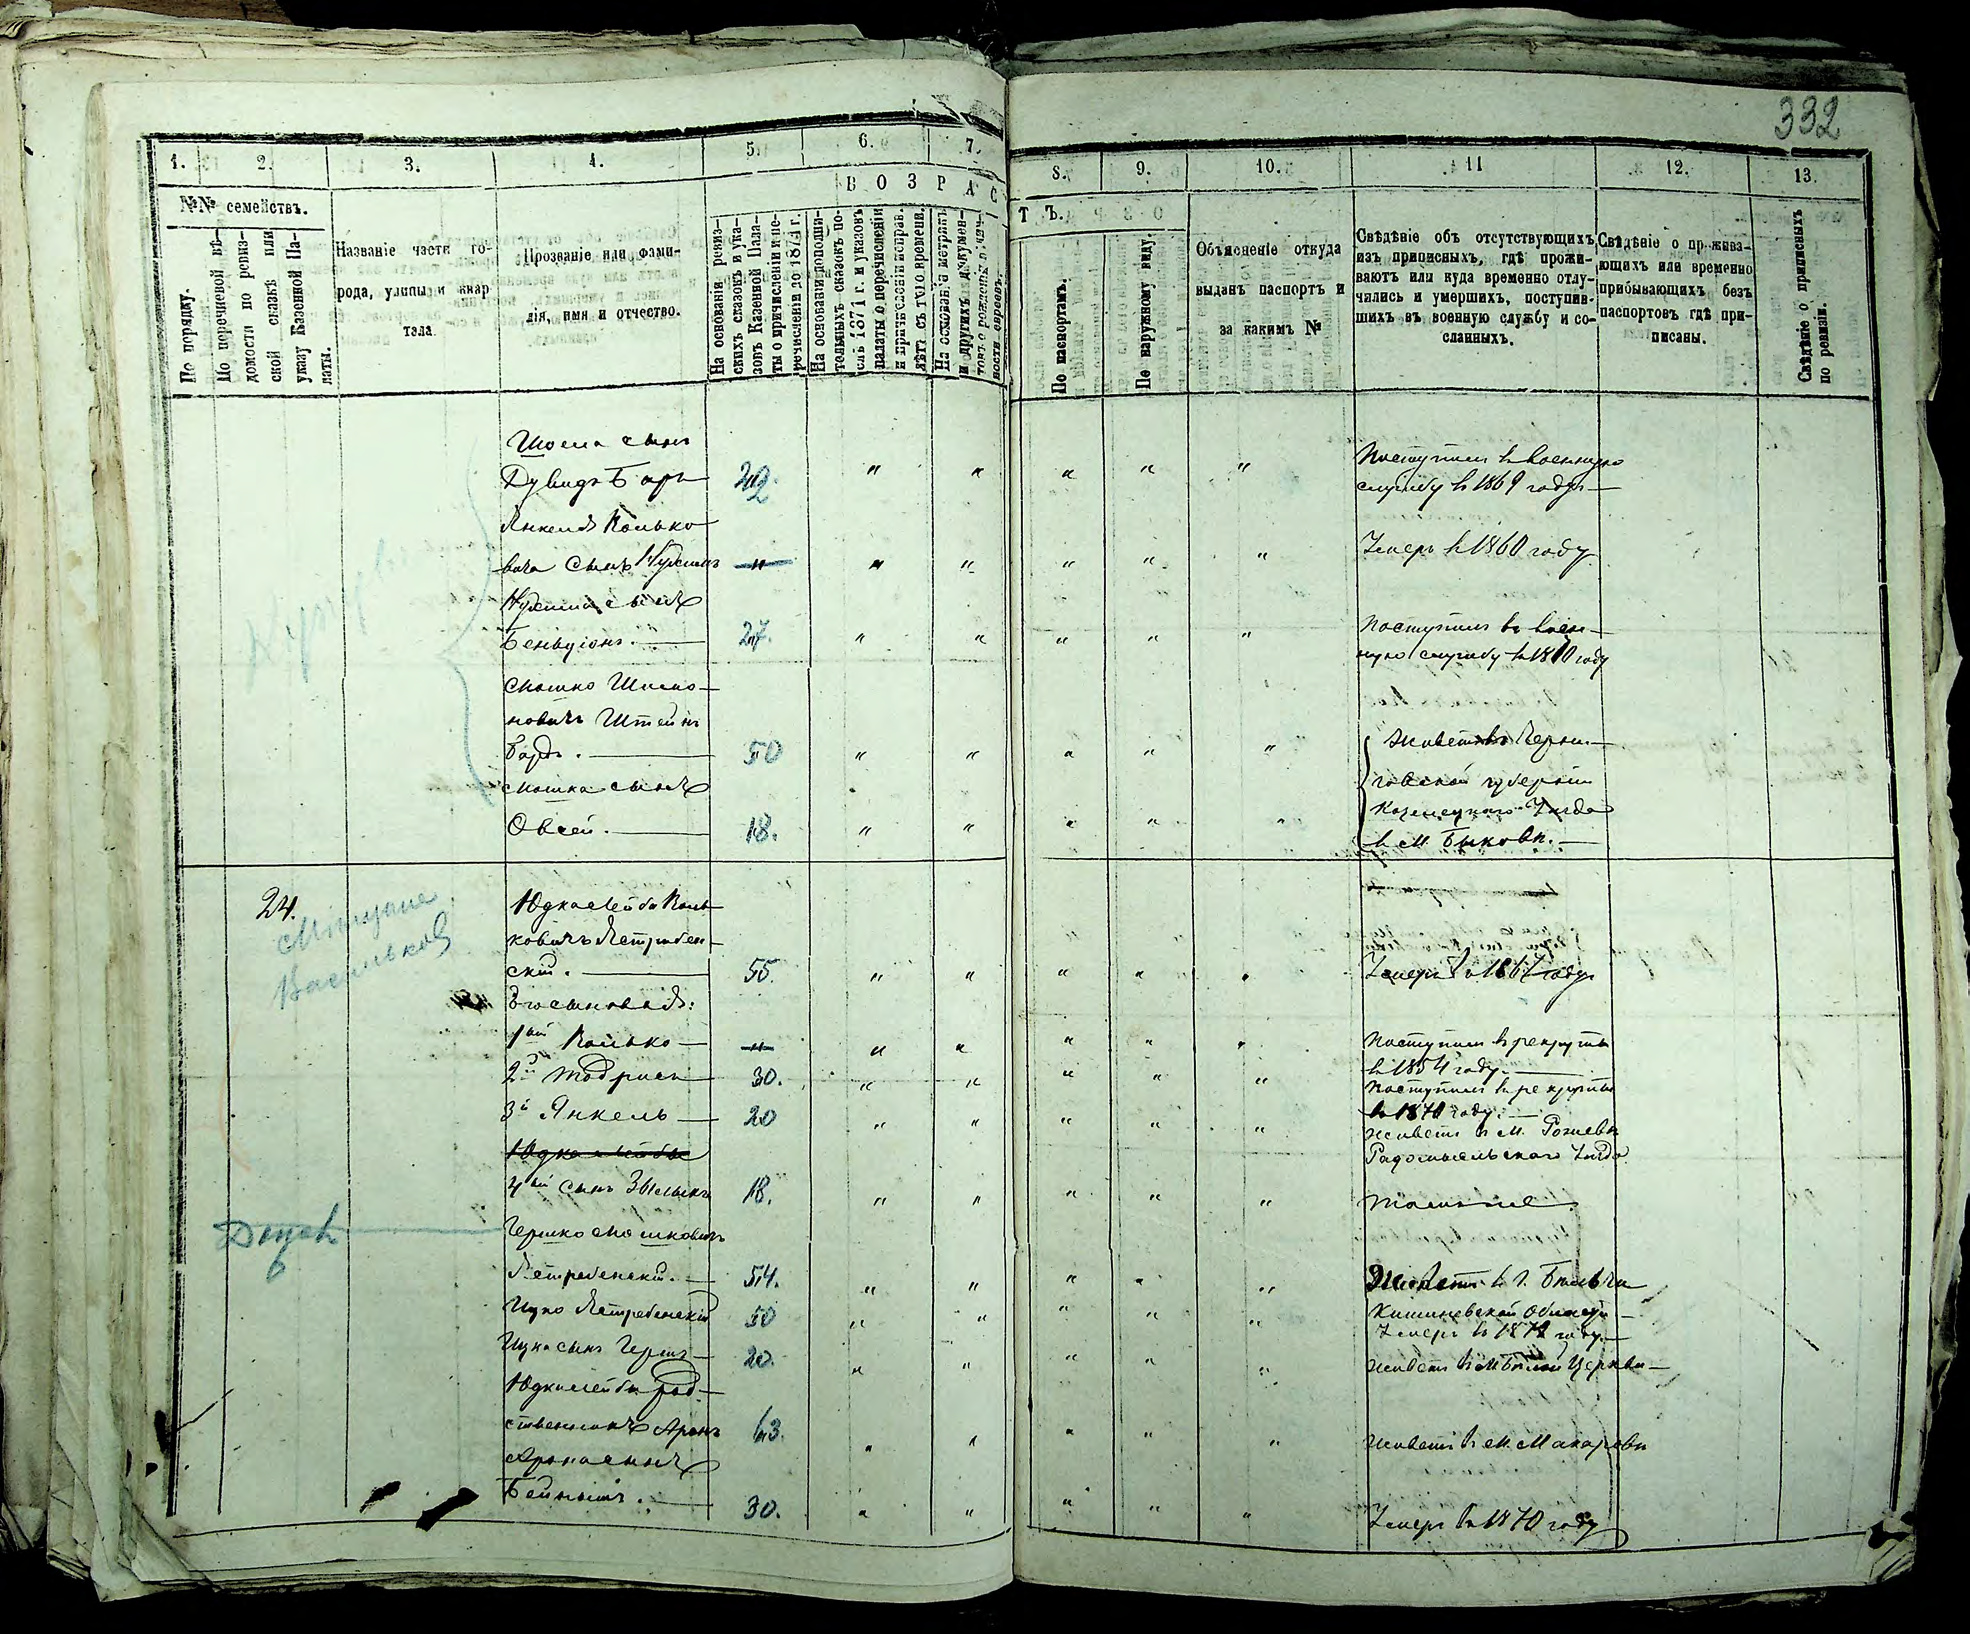 332
1. 2. 3. 4. 5. 6. 7.
8. 9. 10. 11 12. 13.
ВОЗРАС
ТЪ.
№№ семействъ.
По порядку.
По перечневой вѣ-
домости по ревиз-
ской сказкѣ или
указу Казенной Па-
латы.
Названіе части го-
рода, улицы и квар
тала.
Прозваніе или фами-
лія, имя и отчество.
На основаніи ревиз-
скихъ сказокъ и ука-
зовъ Казенной Пала-
ты о причисленіи и пе-
речисленіи до 1874 г.
На основаніи дополни-
тельныхъ сказокъ по-
слѣ 1874 г. и указовъ
палаты о перечисленіи
и причисленіи исправ.
лѣтъ съ того времени.
На основаніи метрикъ
и другихъ докумен-
товъ о рожден
ности евреевъ.
По паспортамъ.
По наружному виду.
Объясненіе откуда
выданъ паспортъ и
за какимъ №
Свѣдѣніе объ отсутствующихъ
изъ приписныхъ, гдѣ прожи-
ваютъ или куда временно отлу-
чились и умершихъ, поступив-
шихъ въ военную службу и со-
сланныхъ.
Свѣдѣніе о прожива-
ющихъ или временно
прибывающихъ безъ
паспортовъ гдѣ при-
писаны.
Свѣдѣніе о приписныхъ
по ревизіи.
Шоема сынъ
Дувидъ Беръ 22. " " " " " Поступилъ въ военную
службу въ 1869 году
Янкеля Колько
вича сынъ Нухимъ " " " " " " Умеръ въ 1860 году.
Нухима сынъ
Бенціонъ. 27. " " " " " Поступилъ въ воен-
ную службу въ 1870 году
Мошко Шимо-
новичъ Штейн
бардъ. 50 " " " " " Живетъ въ Черни-
говской губерніи
Мошка сынъ
Козелецкаго Уѣзда
Овсей. 18. " " " " " въ м. Быковѣ.
24. Юдка Лейба Коль-
Мѣщане
Васильков
ковичъ Ястребен-
скій. 55. " " " " " Умеръ въ 1867 году
Его сыновья:
1ый Колько " " " " " " Поступилъ въ рекруты
въ 1854 году.
2й Тодрисъ 30. " " " " " Поступилъ въ рекруты
въ 1870 году.
3й Янкель 20 " " " " " Живетъ въ м. Рожевѣ
Радомысльскаго Уѣзда
Юдка Лейбы
4ый сынъ 18. " " " " " Тамъ же
Гершко Мошковичъ
Ястребенскій. 54. " " " " " Живетъ въ г. Бѣльчи
Кишиневской Области
Ицко Ястребенскій 50 " " " " " Умеръ въ году.
Ицка сынъ Гершъ 20. " " " " " Живетъ въ м. Бѣлой Церкви
Юдка Лейбы род-
ственникъ Аронъ 63. " " " " " Живетъ въ м. Макаровѣ
Арона сынъ
Бейнишъ. 30. " " " " " Умеръ въ 1870 году